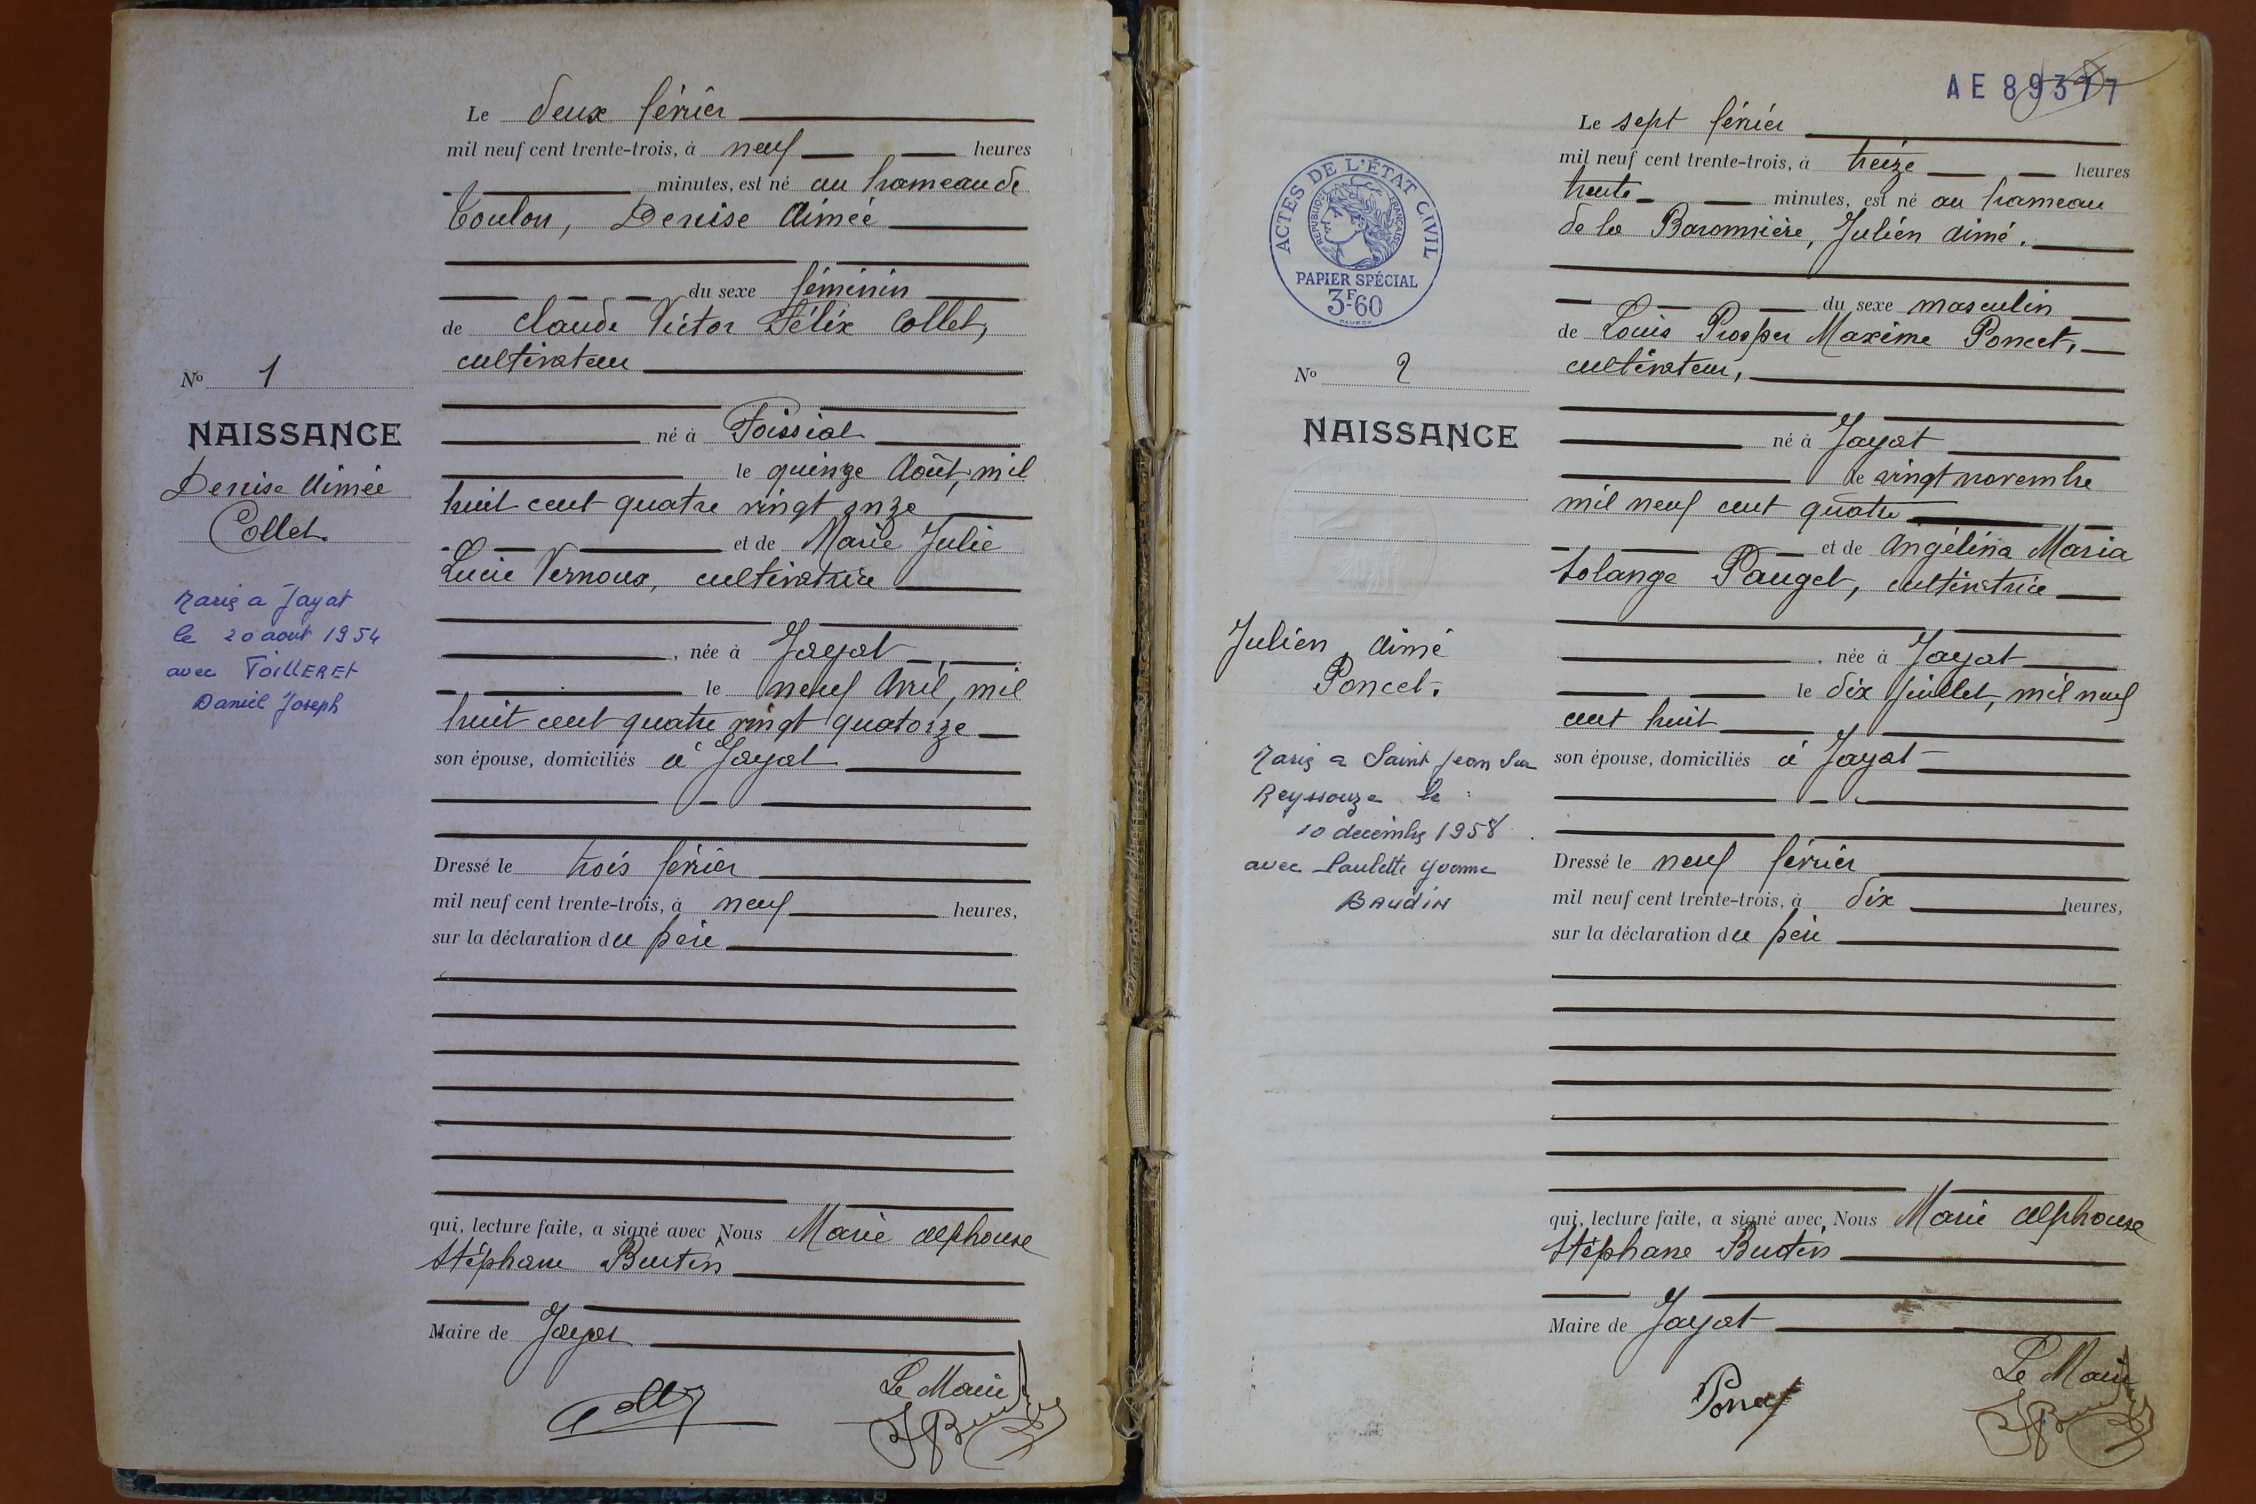 Le deux février
mil neuf cent trente-trois, à neuf heures
minutes, est né au hameau de
Toulon, Denise Aimée
du sexe féminin
de Claude Victor Félix Collet,
cultivateur
né à Foissiat
le quinze Août, mil
huit cent quatre vingt onze
et de Marie Julie
Lucie Vernoux, cultivatrice
, née à Jayat
le neuf Avril, mil
huit cent quatre vingt quatorze
son épouse, domiciliés à Jayat
Dressé le trois février
mil neuf cent trente-trois, à neuf heures,
sur la déclaration du père
qui, lecture faite, a signé avec Nous Marie Alphonse
Stéphane Burtin
Maire de Jayat
Le Maire
No 1
NAISSANCE
Denise Aimée
Collet.
Marié a Jayat
le 20 août 1954
avec
Daniel Joseph
AE 89377
Le sept février
mil neuf cent trente-trois, à treize heures
trente minutes, est né au hameau
de la Baronnière, Julien Aimé.
du sexe masculin
de Louis Prosper Maxime Poncet,
cultivateur,
né à Jayat
le vingt novembre
mil neuf cent quatre
et de Angélina Maria
Solange Pauget, cultivatrice
, née à Jayat
le dix juillet, mil neuf
cent huit
son épouse, domiciliés à Jayat
Dressé le neuf février
mil neuf cent trente-trois, à dix heures,
sur la déclaration du père
qui, lecture faite, a signé avec Nous Marie Alphonse
Stéphane Burtin
Maire de Jayat
Poncet
Le Maire
ACTES DE L'ÉTAT CIVIL
RÉPUBLIQUE FRANÇAISE
PAPIER SPÉCIAL
3F-60
No 2
NAISSANCE
Julien Aimé
Poncet.
Marié a Saint Jean Sur
Reyssouze le
10 décembre 1958
avec Paulette Yvonne
BAUDIN